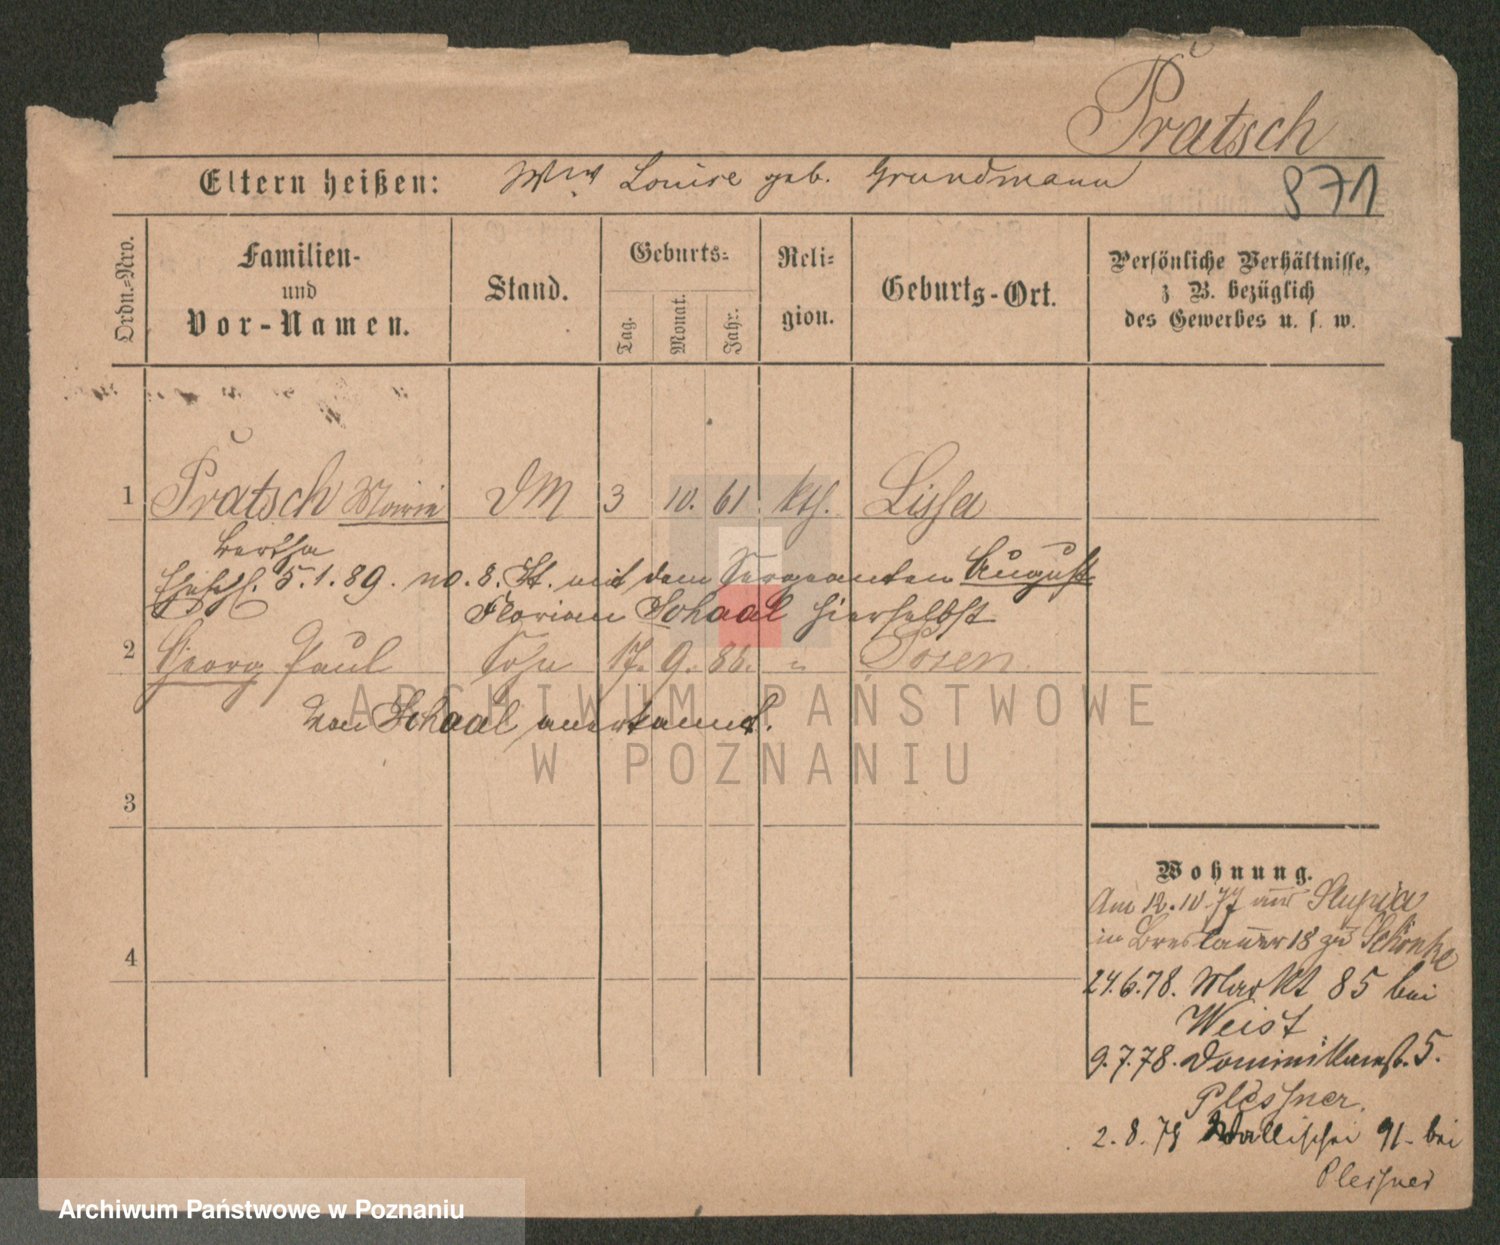 Pratsch
Eltern heißen: Wwe Louise geb. Grundmann
871
Ordn.-Nro.
Familien-
und
Vor-Namen.
Stand.
Geburts-
Tag.
Monat.
Jahr.
Reli-
gion.
Geburts-Ort.
Persönliche Verhältnisse,
z B. bezüglich
des Gewerbes u. s. w.
1 Pratsch Marie DM 3 10. 61. kth. Lissa
Bertha
Ehesch. 5.1.89. no. 8. St. mit dem Sergeanten August
Florian Schaal hierselbst
2 Georg Paul Sohn 17. 9. 86. " Posen
von Schaal anerkannt.
3
4
Wohnung.
Am 12.10.77 aus Slupia
in Breslauer 18 zu Schönke
24.6.78. Markt 85 bei
Weist
9.7.78. Dominikanst. 5.
Plessner.
2.8.78 Wallischei 91 - bei
Plessner
ARCHIWUM PAŃSTWOWE
W POZNANIU
Archiwum Państwowe w Poznaniu